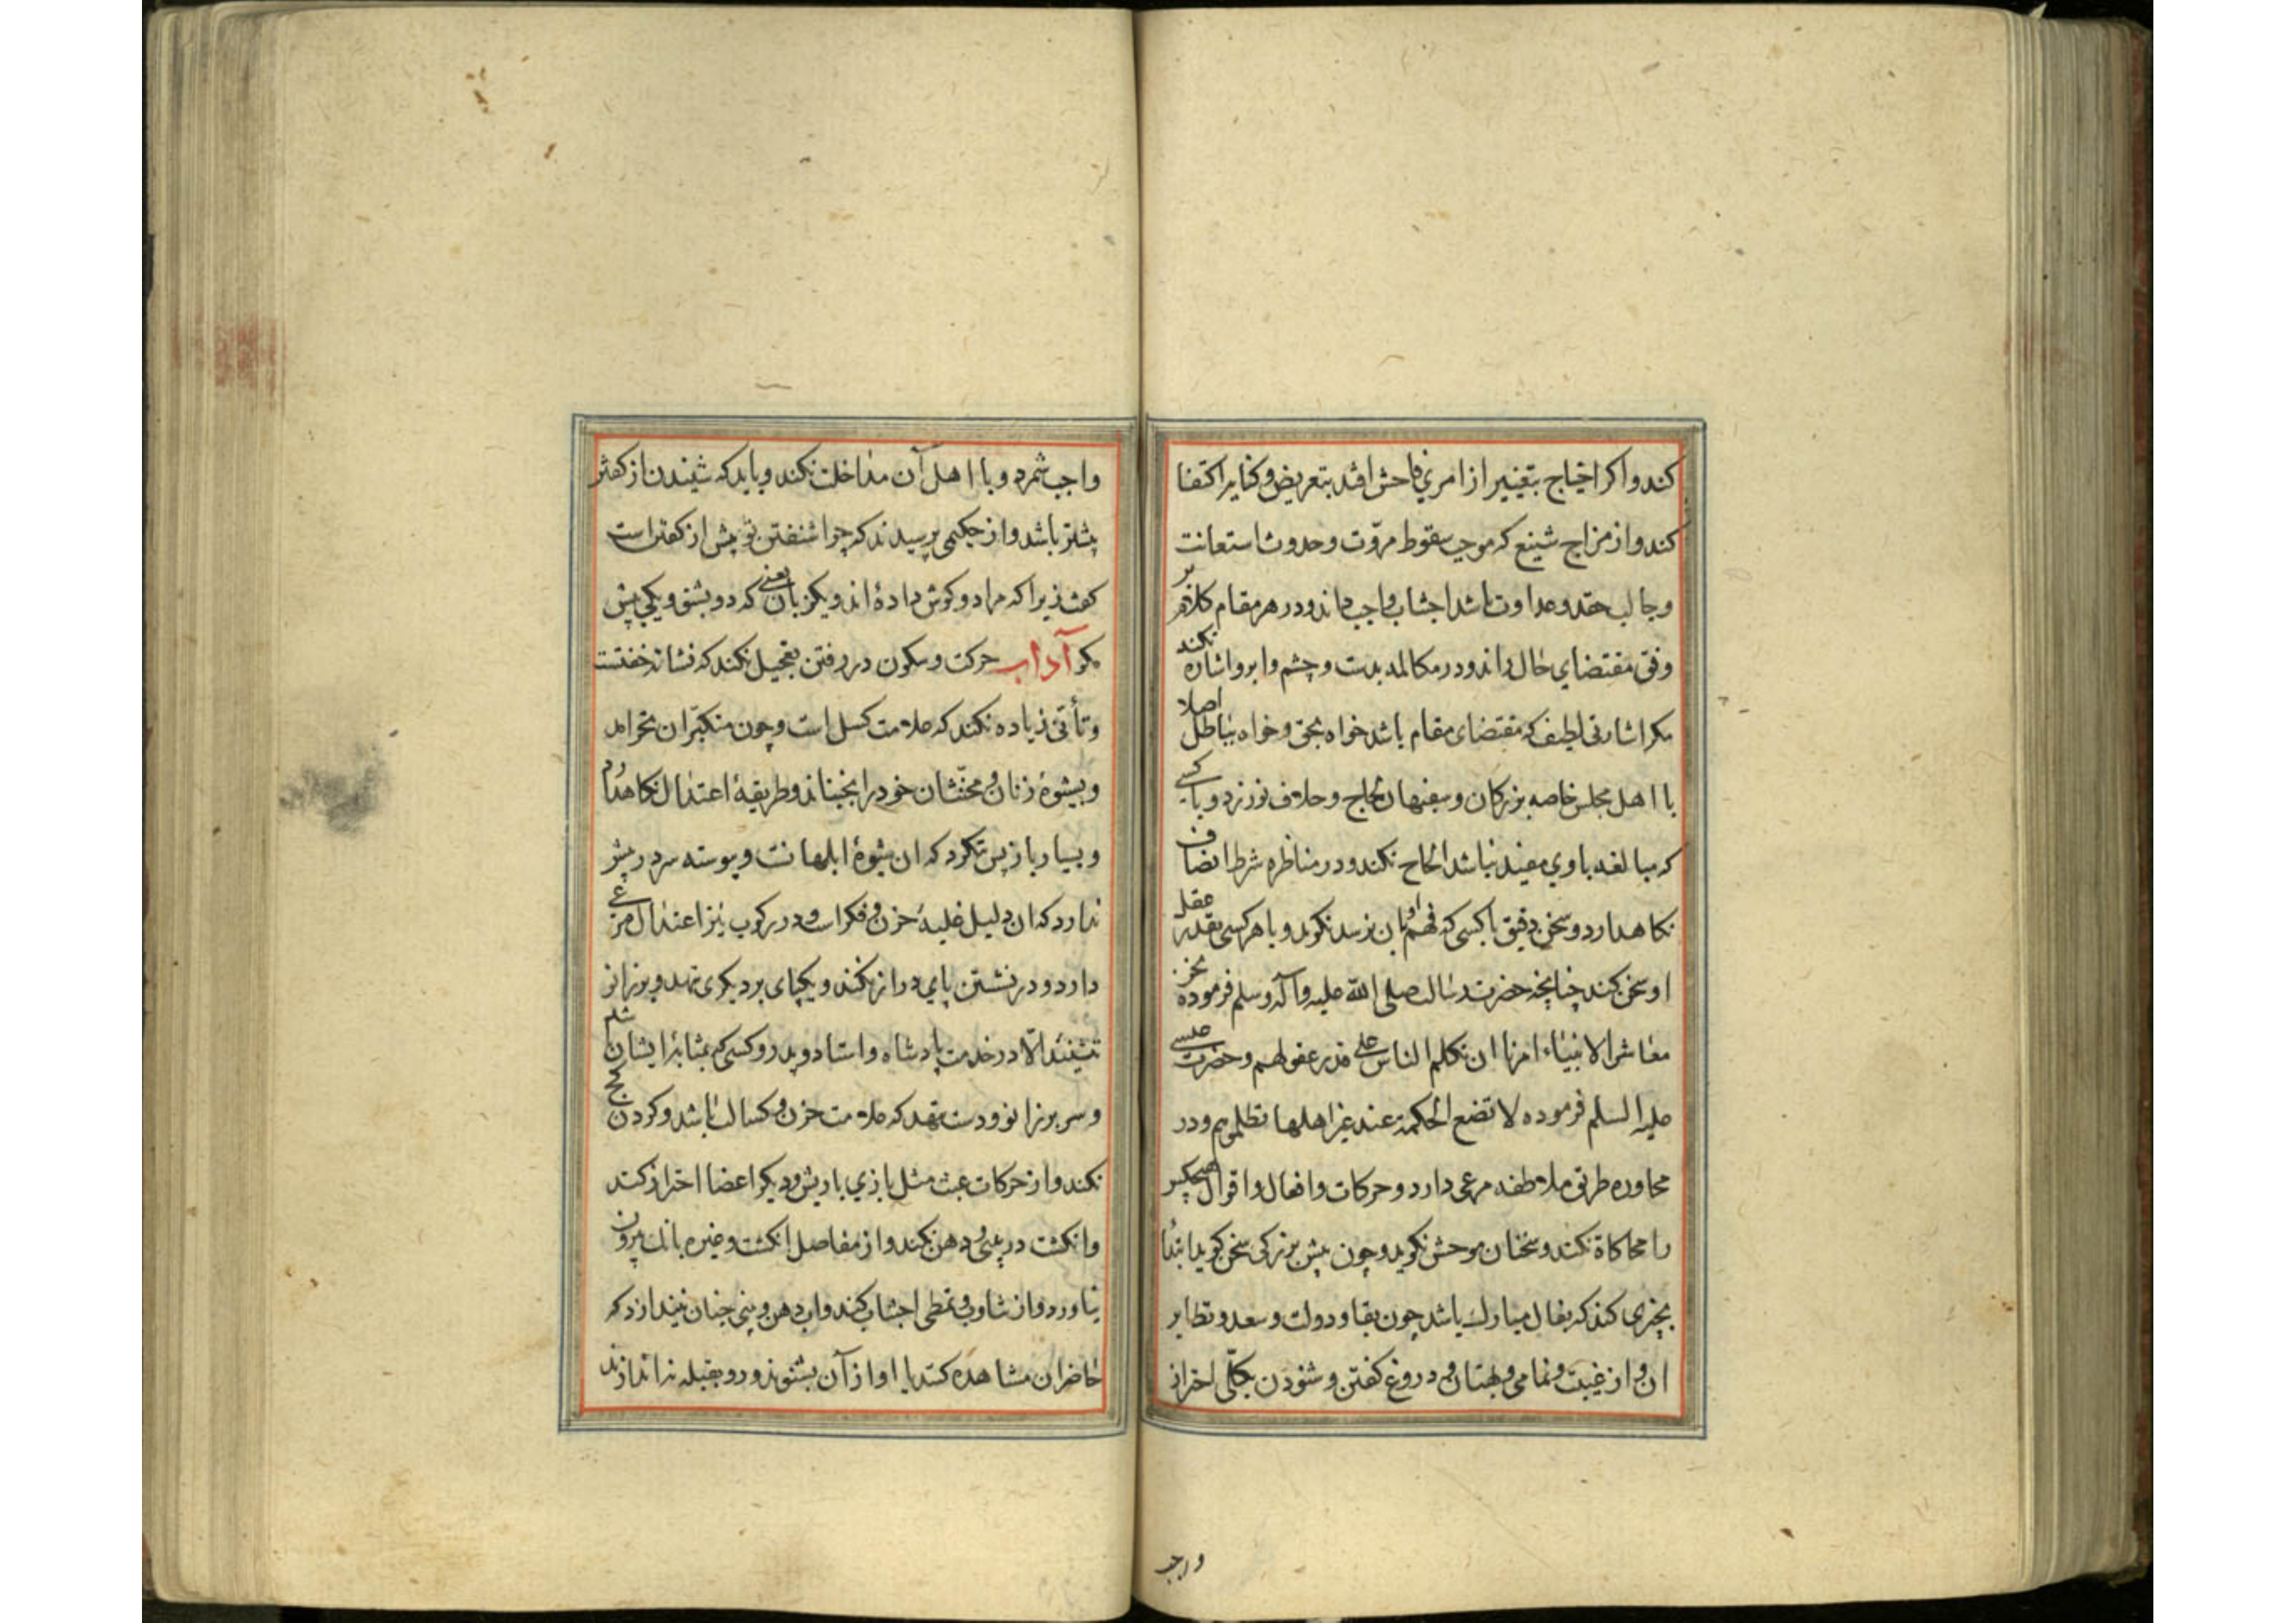 کند و اکر احتیاج بتغییر از امری فاحش افتد بتعریض و کنایه اکتفا
کند و از مزاح شنیع که موجب سقوط مروّت و حدوث استعانت
و جالب حقد و عداوت باشد اجتناب واجب داند و در هر مقام کلام بر
وفق مقتضای حال راند و در مکالمه بدست و چشم و ابرو اشاره نکند
مکر اشارتی لطیف که مقتضای مقام باشد خواه بحق و خواه بباطل اصلا
با اهل مجلس خاصه بزرکان و سفیهان لجاج و خلاف نورزد و با کسی
که مبالغه با وی مفید نباشد الحاح نکند و در مناظره شرط انصاف
نکاهدارد و سخن دقیق با کسی که فهم او بان نرسد نکوید و با هر کسی بقدر عقل
او سخن کند چنانچه حضرت رسالت صلی الله علیه و آله وسلم فرموده نحن
معاشر الانبیاء امرنا ان نکلم الناس علی قدر عقولهم و حضرت عیسی
علیه السلم فرموده لا تضع الحکمة عند غیر اهلها تظلمهم و در
محاوره طریق ملاطفه مرعی دارد و حرکات و افعال و اقوال هیچکس
را محاکاة نکند و سخنان موحش نکوید و چون پیش بزرکی سخن کوید ابتدا
بچیزی کند که بفال مبارک باشد چون بقا و دولت و سعد و نظایر
ان و از غیبت و نمامی و بهتان و دروغ کفتن و شنودن بکلّی احتراز
واجب
واجب شمرد و با اهل آن مداخلت نکند و باید که شنیدن از کفتن
بیشتر باشد و از حکیمی پرسیدند که چرا شنفتن تو بیش از کفتن است
کفت زیرا که مرا دو کوش داده اند و یکزبان یعنی که دو بشنو و یکی بیش
مکو آداب حرکت و سکون در رفتن تعجیل نکند که نشانه خفتست
و تأنّی زیاده نکند که علامت کسل است و چون متکبّران نخرامد
و بشیوهٔ زنان و مخنّثان خود را نجنباند و طریقهٔ اعتدال نکاهدارد
و بسیار باز پس ننکرد که ان شیوهٔ ابلهانست و پیوسته سر در پیش
ندارد که ان دلیل غلبهٔ حزن و فکر است و در رکوب نیز اعتدال مرعی
دارد و در نشستن پای دراز نکند و یکپای بر دیکری ننهد و بزانو
ننشیند الّا در خدمت پادشاه و استاد و پدر و کسی که بمثابهٔ ایشان
و سر بر زانو و دست ننهد که علامت حزن و کسالت باشد و کردن کج
نکند و از حرکات عبث مثل بازی با ریش و دیکر اعضا احتراز کند
و انکشت در بینی و دهن نکند و از مفاصل انکشت و غیره بانک بیرون
نیاورد و از تثاوب و تمطی اجتناب کند و اب دهن و بینی چنان نیندازد که
حاضران مشاهده کنند یا اواز آن بشنوند و رو بقبله نه اندازد